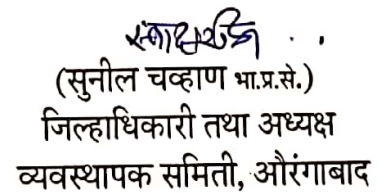 स्वाक्षरित
(सुनील चव्हाण भा.प्र.से.)
जिल्हाधिकारी तथा अध्यक्ष
व्यवस्थापक समिती, औरंगाबाद